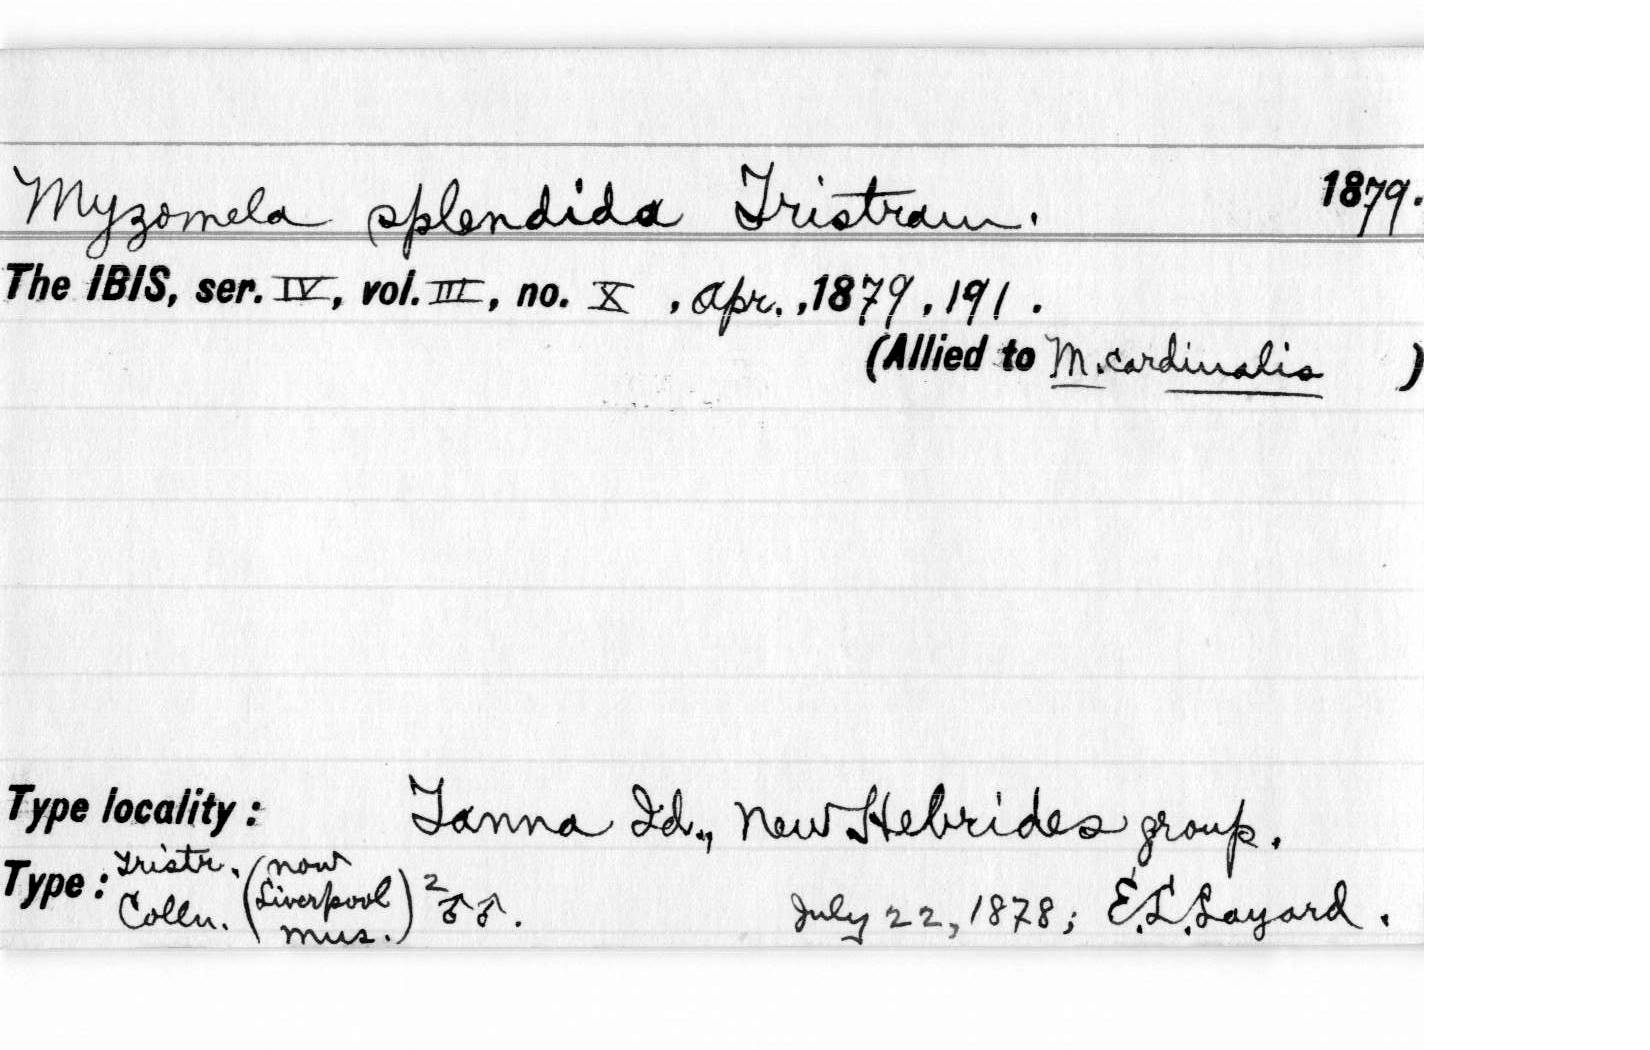 Myzomela splendida Tristram. 1879.
The IBIS, ser. IV, vol. III, no. X , Apr. , 1879 , 191 .
(Allied to M. cardinalis )
Type locality : Tanna Id., New Hebrides group.
Type : Tristr. Colln. (now Liverpool Mus.) 2 ♂♂. July 22, 1878; E.L. Layard .